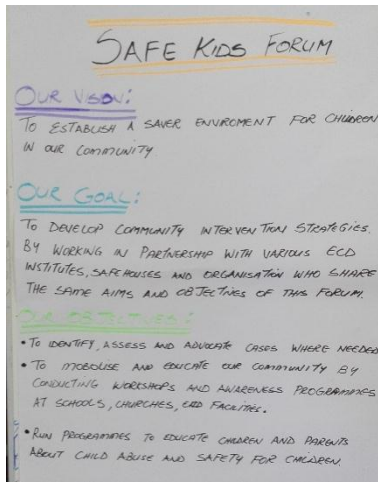 SAFE KIDS FORUM
OUR VISION:
TO ESTABLISH A SAVER ENVIROMENT FOR CHILDREN
IN OUR COMMUNITY
OUR GOAL:
TO DEVELOP COMMUNITY INTERVENTION STRATEGIES.
BY WORKING IN PARTNERSHIP WITH VARIOUS ECD
INSTITUTES, SAFEHOUSES AND ORGANISATION WHO SHARE
THE SAME AIMS AND OBJECTIVES OF THIS FORUM.
OUR OBJECTIVES:
• TO IDENTIFY, ASSESS AND ADVOCATE CASES WHERE NEEDED
• TO MOBOLISE AND EDUCATE OUR COMMUNITY BY
CONDUCTING WORKSHOPS AND AWARENESS PROGRAMMES
AT SCHOOLS, CHURCHES, ECD FACILITIES.
• RUN PROGRAMMES TO EDUCATE CHILDREN AND PARENTS
ABOUT CHILD ABUSE AND SAFETY FOR CHILDREN.